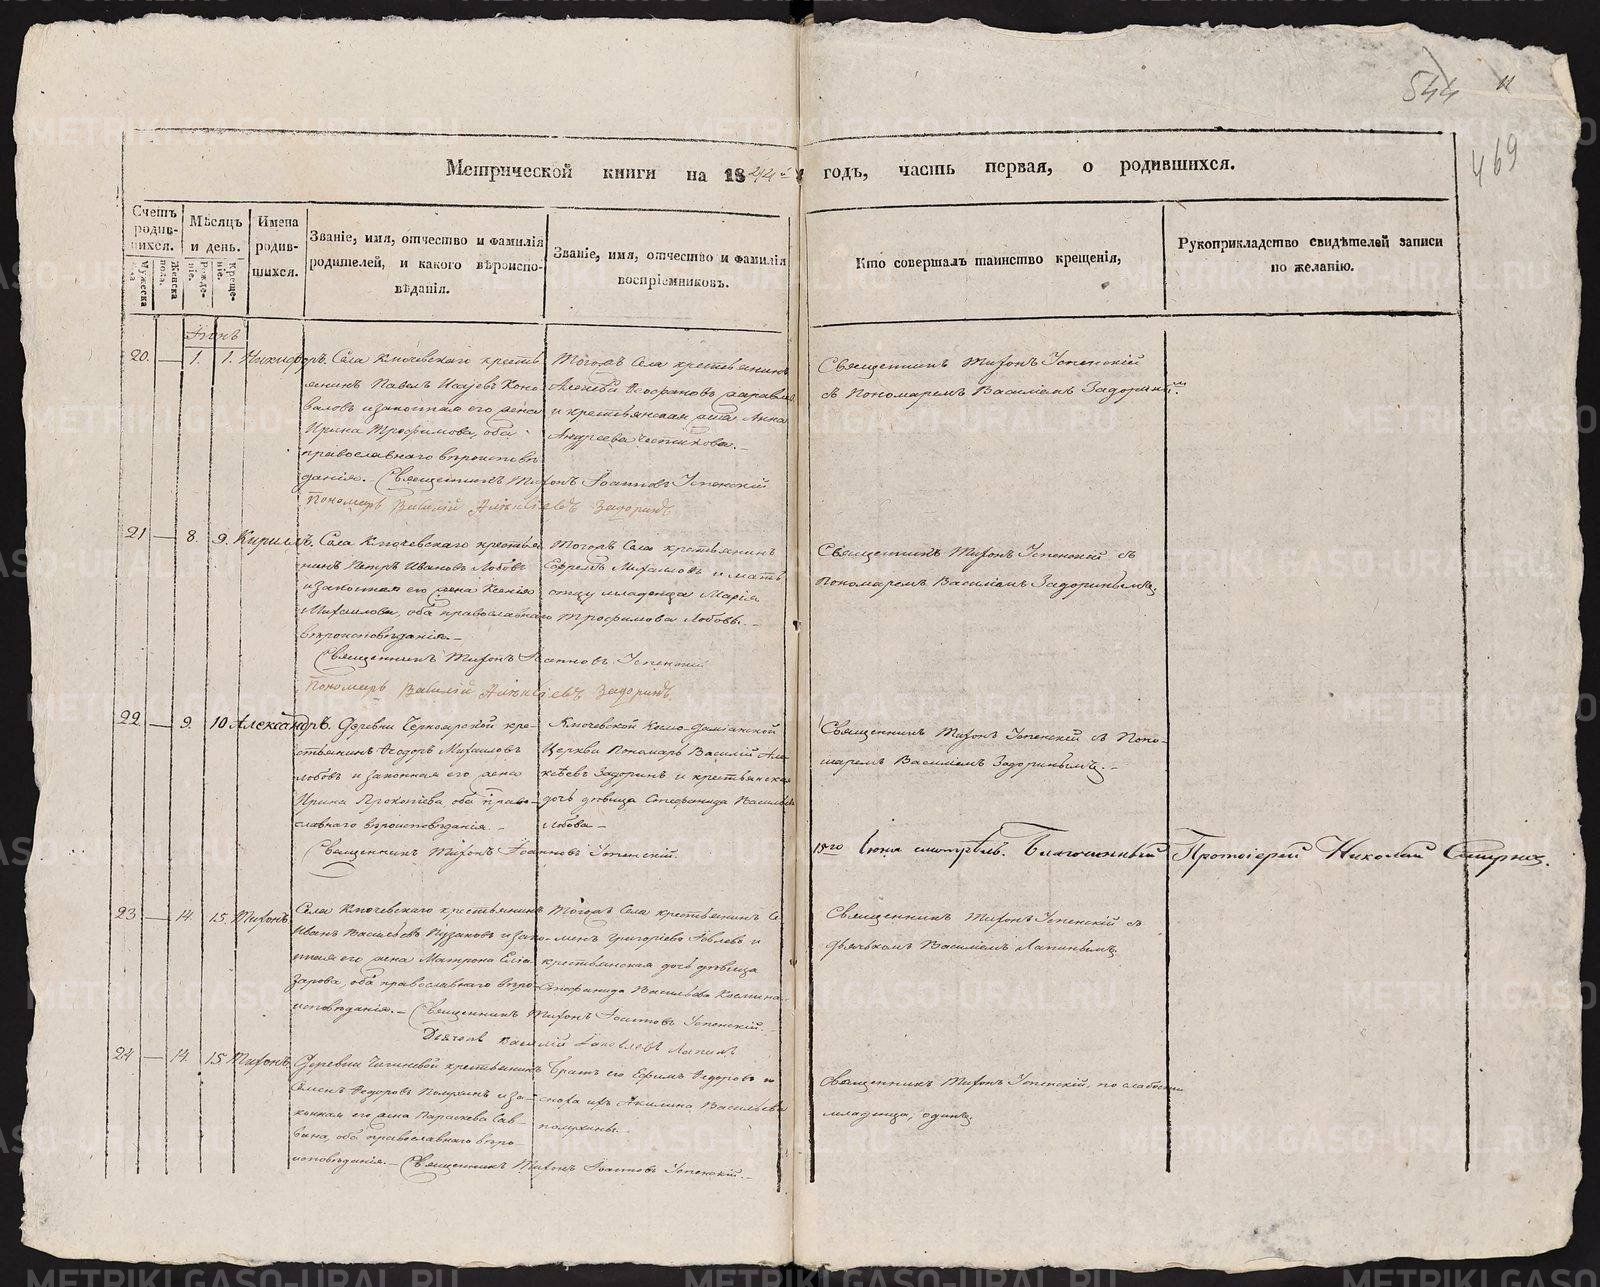 544
469
Метрической книги на 1844й годъ, часть первая, о родившихся.
Счетъ родившихся.
Мужеска пола.
Женска пола.
Мѣсяцъ и день.
Рожденіе.
Крещеніе.
Имена родившихся.
Званіе, имя, отчество и фамилія родителей, и какого вѣроисповѣданія.
Званіе, имя, отчество и фамилія воспріемниковъ.
Кто совершалъ таинство крещенія,
Рукоприкладство свидѣтелей записи по желанію.
20. — 1. 1. Никифоръ.
Села Ключевскаго кресть
янинъ Павелъ Исаевъ Коно
валовъ и законная его жена
Ирина Трофимова, оба
православнаго вѣроисповѣ
данія. — Священникъ Тихонъ Іоанновъ Успенскій
Пономарь Василій Алексіевъ Задоринъ
Тогожъ Села крестьянинъ
Алексѣй Феофановъ
и крестьянская Анна
Андреева
Священникъ Тихонъ Успенскій
съ Пономаремъ Василіемъ Задоринымъ.
21 — 8. 9. Кириллъ.
Села Ключевскаго крестья
нинъ Петръ Ивановъ Лобовъ
и законная его жена Ксенія
Михаилова, оба православнаго
вѣроисповѣданія. —
Священникъ Тихонъ Іоанновъ Успенскій
Пономарь Василій Алексіевъ Задоринъ
Тогожъ Села крестьянинъ
Михаиловъ и мать
отцу младенца Марія
Трофимова Лобовы. —
Священникъ Тихонъ Успенскій съ
Пономаремъ Василіемъ Задоринымъ.
22 — 9. 10 Александръ.
Деревни Черноярской кре-
стьянинъ Феодоръ Михаиловъ
Лобовъ и законная его жена
Ирина Прокопіева, оба право-
славнаго вѣроисповѣданія. —
Священникъ Тихонъ Іоанновъ Успенскій.
Ключевской Космо-Даміанской
Церкви Пономарь Василій Але
ксѣевъ Задоринъ и крестьянская
дочь дѣвица Стефанида Васильева
Лобова —
Священникъ Тихонъ Успенскій съ Поно-
маремъ Василіемъ Задоринымъ. —
Іюня смотрѣлъ. Благочинный Протоіерей Николай Смирнов.
23 — 14. 15. Тихонъ.
Села Ключевскаго крестьянинъ
Иванъ Васильевъ Пузановъ и зако-
нная его жена Матрона Елиа
зарова, оба православнаго вѣро-
исповѣданія. — Священникъ Тихонъ Іоанновъ Успенскій. —
Дьячекъ Василій Іаковлевъ Лапинъ
Тогожъ Села крестьянинъ Се
менъ Григоріевъ Іовлевъ и
крестьянская дочь дѣвица
Стефанида Васильева
Священникъ Тихонъ Успенскій съ
дьячкомъ Василіемъ Лапинымъ.
24 — 14. 15. Тихонъ.
Деревни крестьянинъ
Семенъ Феодоровъ и за-
конная его жена Параскева Сав-
вина, оба православнаго вѣро-
исповѣданія. — Священникъ Тихонъ Іоанновъ Успенскій. —
Братъ его Ефимъ Феодоровъ и
сноха ихъ Акилина Васильева
Священникъ Тихонъ Успенскій, по слабости
младенца, одинъ.